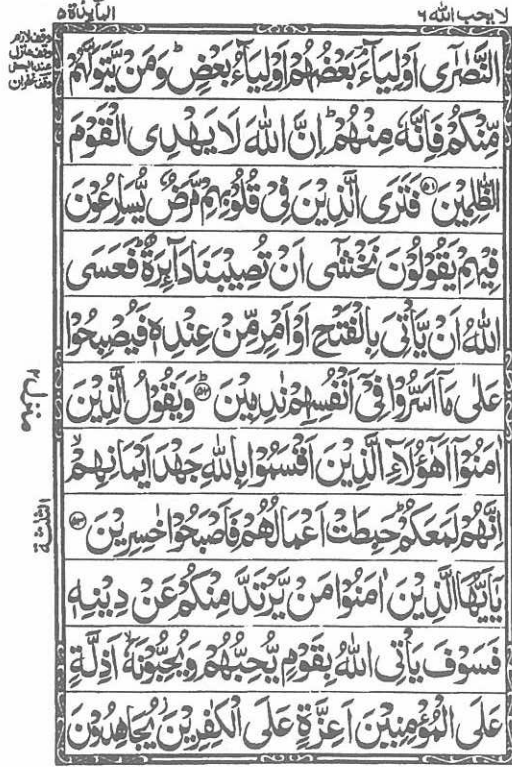 لا يحب الله ٦
المآئدة ٥
وقف لازم
وقف منزل
وقف غفران
النَّصٰرٰۤى اَوْلِيَآءَ ؔۘ بَعْضُهُمْ اَوْلِيَآءُ بَعْضٍ ؕ وَمَنْ يَّتَوَلَّهُمْ
مِّنْكُمْ فَاِنَّهٗ مِنْهُمْ ؕ اِنَّ اللّٰهَ لَا يَهْدِى الْقَوْمَ
الظّٰلِمِيْنَ ۝۵۱ فَتَرَى الَّذِيْنَ فِىْ قُلُوْبِهِمْ مَّرَضٌ يُّسَارِعُوْنَ
فِيْهِمْ يَقُوْلُوْنَ نَخْشٰٓى اَنْ تُصِيْبَنَا دَآئِرَةٌ ؕ فَعَسَى
اللّٰهُ اَنْ يَّاْتِىَ بِالْفَتْحِ اَوْ اَمْرٍ مِّنْ عِنْدِهٖ فَيُصْبِحُوْا
عَلٰى مَاۤ اَسَرُّوْا فِىْۤ اَنْفُسِهِمْ نٰدِمِيْنَ ۝۵۲ؕ وَيَقُوْلُ الَّذِيْنَ
اٰمَنُوْۤا اَهٰٓؤُلَآءِ الَّذِيْنَ اَقْسَمُوْا بِاللّٰهِ جَهْدَ اَيْمَانِهِمْ ۙ
اِنَّهُمْ لَمَعَكُمْ ؕ حَبِطَتْ اَعْمَالُهُمْ فَاَصْبَحُوْا خٰسِرِيْنَ ۝۵۳
يٰۤاَيُّهَا الَّذِيْنَ اٰمَنُوْا مَنْ يَّرْتَدَّ مِنْكُمْ عَنْ دِيْنِهٖ
فَسَوْفَ يَاْتِى اللّٰهُ بِقَوْمٍ يُّحِبُّهُمْ وَيُحِبُّوْنَهٗۤ ۙ اَذِلَّةٍ
عَلَى الْمُؤْمِنِيْنَ اَعِزَّةٍ عَلَى الْكٰفِرِيْنَ ؗ يُجَاهِدُوْنَ
منزل ٢
الثلثة